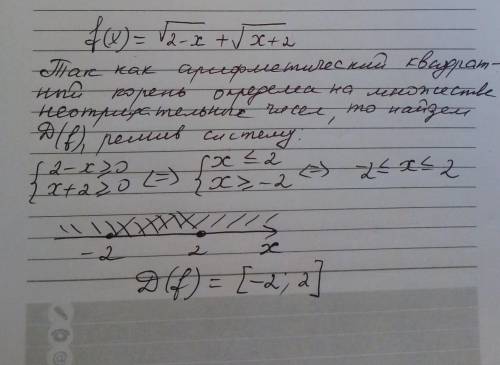 f(x) = √2-x + √x+2
Так как арифметический квадрат-
ный корень определен на множестве
неотрицательных чисел, то найдем
D(f), решив систему.
{2-x ≥ 0 <=> {x ≤ 2 <=> -2 ≤ x ≤ 2
{x+2 ≥ 0 {x ≥ -2
-2 2 x
D(f) = [-2; 2]